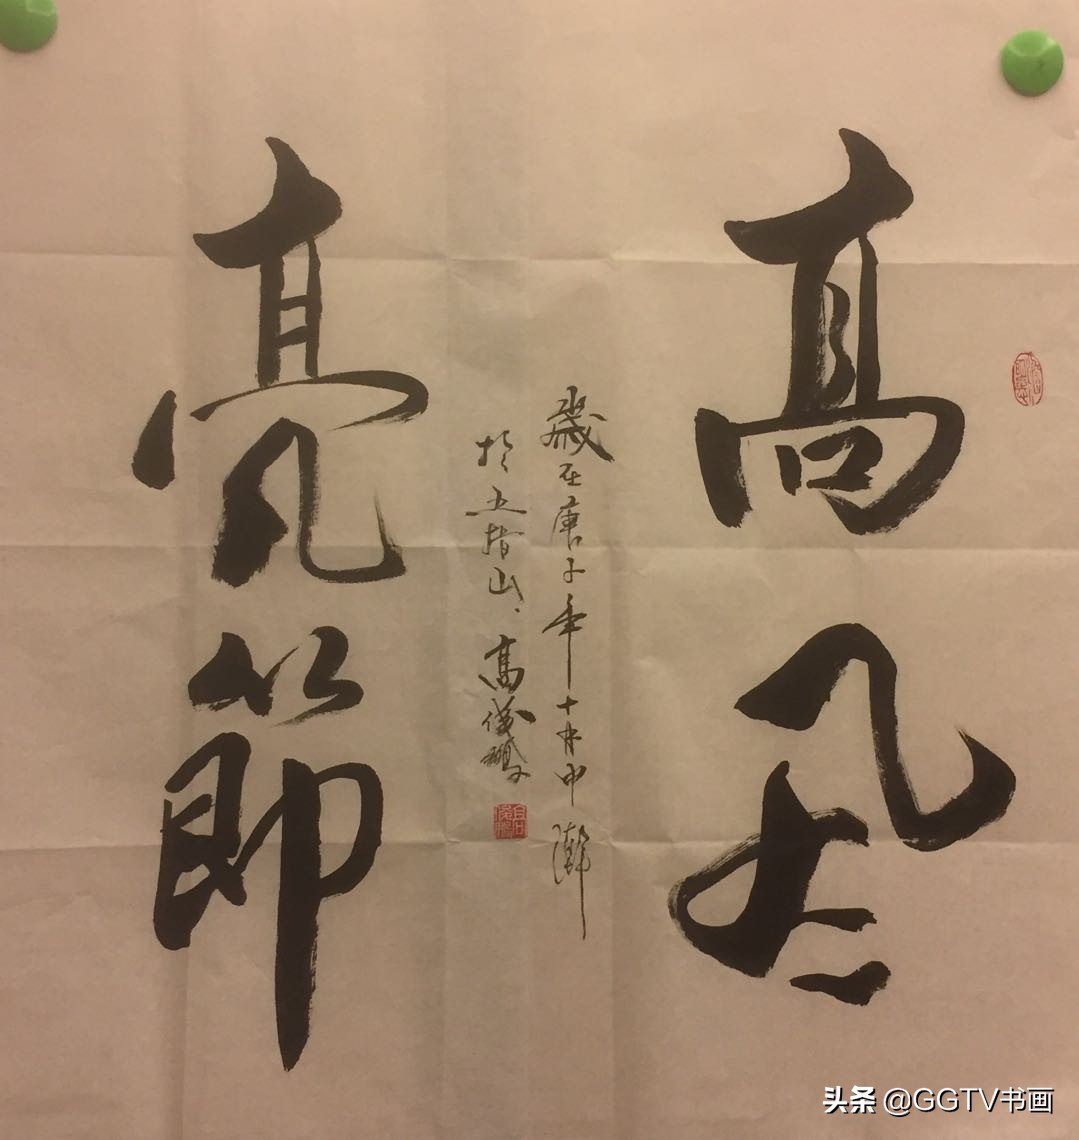 髙風
亮節
歲在庚子年十月中澣
於五指山、髙儀鵬
头条 @GGTV书画